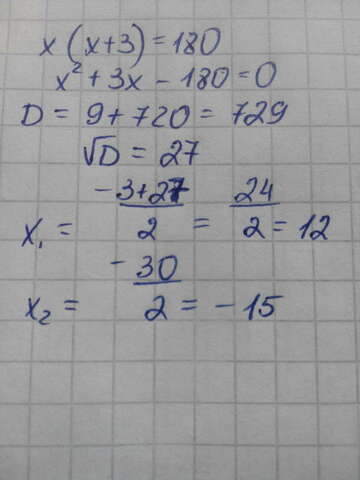 x(x+3)=180
x²+3x-180=0
D=9+720=729
√D=27
x₁ = -3+27/2 = 24/2 = 12
x₂ = -30/2 = -15